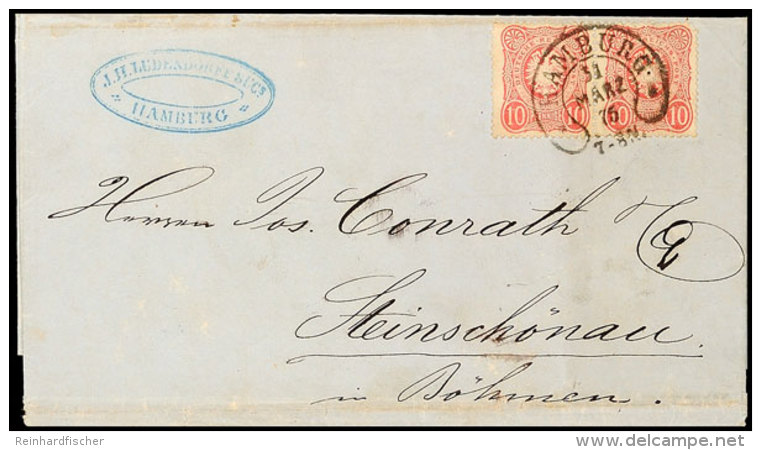 J. H. LUDENDORFF & Co
HAMBURG
10 10 10 10
HAMBURG
31
MÄRZ
75
7-8 N.
Herren Jos. Conrath
Steinschönau
in Böhmen.
Reinhardfischer
delcampe.net